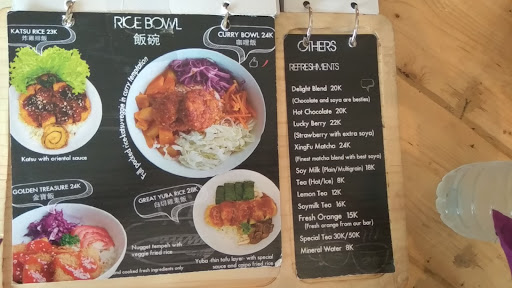 RICE BOWL
飯碗
KATSU RICE 23K
炸雞柳飯
CURRY BOWL 24K
咖哩飯
Full packed rice/katsu/veggie in curry temptation
Katsu with oriental sauce
GOLDEN TREASURE 24K
金寶飯
GREAT YUBA RICE 28K
Nugget tempeh with
veggie fried rice
and cooked fresh ingredients only
Yuba -thin tofu layer- with special
sauce and carpo fried rice
OTHERS
REFRESHMENTS
Delight Blend 20K
(Chocolate and soya are besties)
Hot Chocolate 20K
Lucky Berry 22K
(Strawberry with extra soya)
XingFu Matcha 24K
(Finest matcha blend with best soya)
Soy Milk (Plain/Multigrain) 18K
Tea (Hot/Ice) 8K
Lemon Tea 12K
Soymilk Tea 16K
Fresh Orange 15K
(Fresh orange from our bar)
Special Tea 30K/50K
Mineral Water 8K